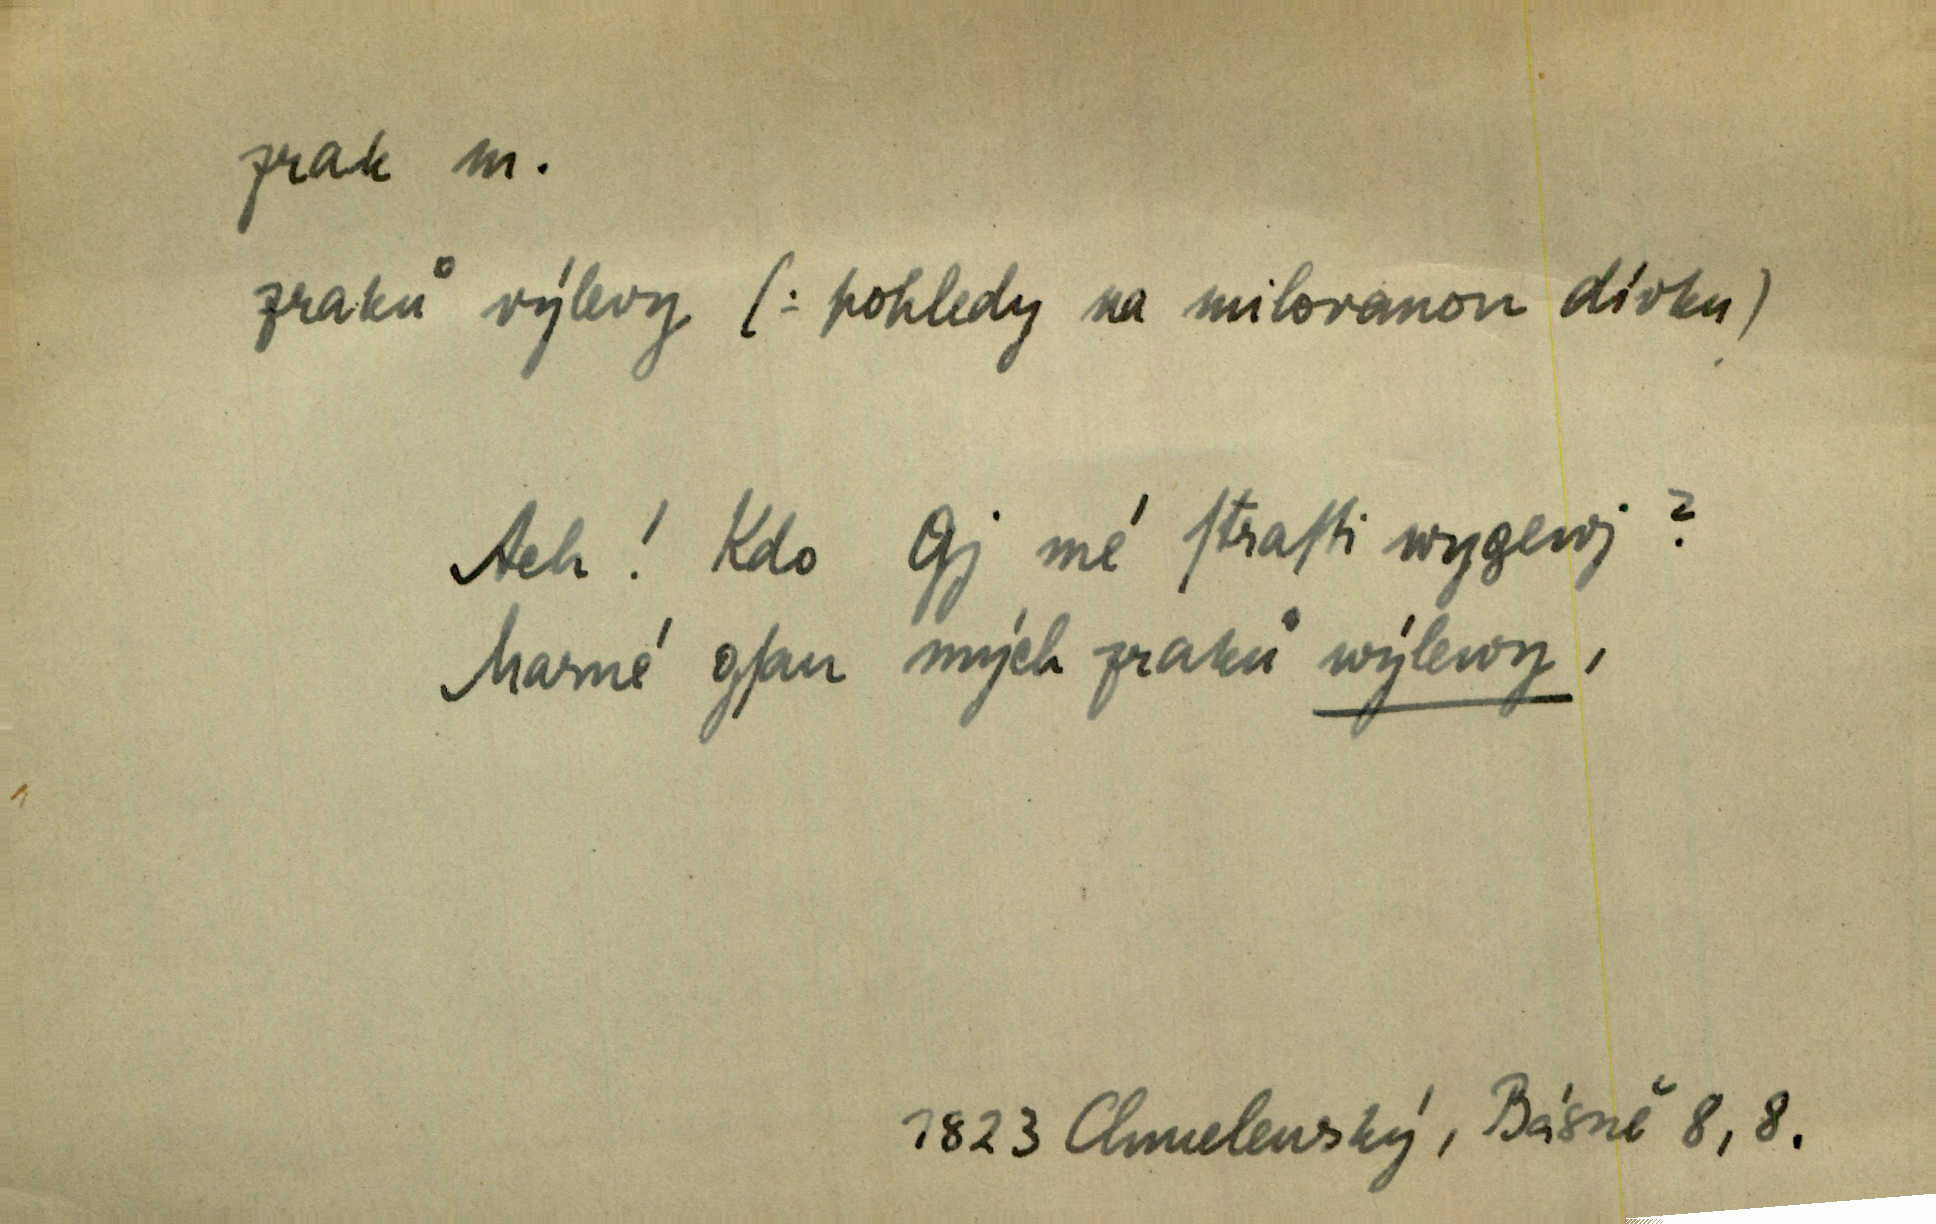 zrak m.
zraků výlevy (: pohledy na milovanou dívku)
Ach! Kdo Gj mé ſtraſti wygewj?
Marné gſau mých zraků wýlewy,
1823 Chmelenský, Básně 8, 8.